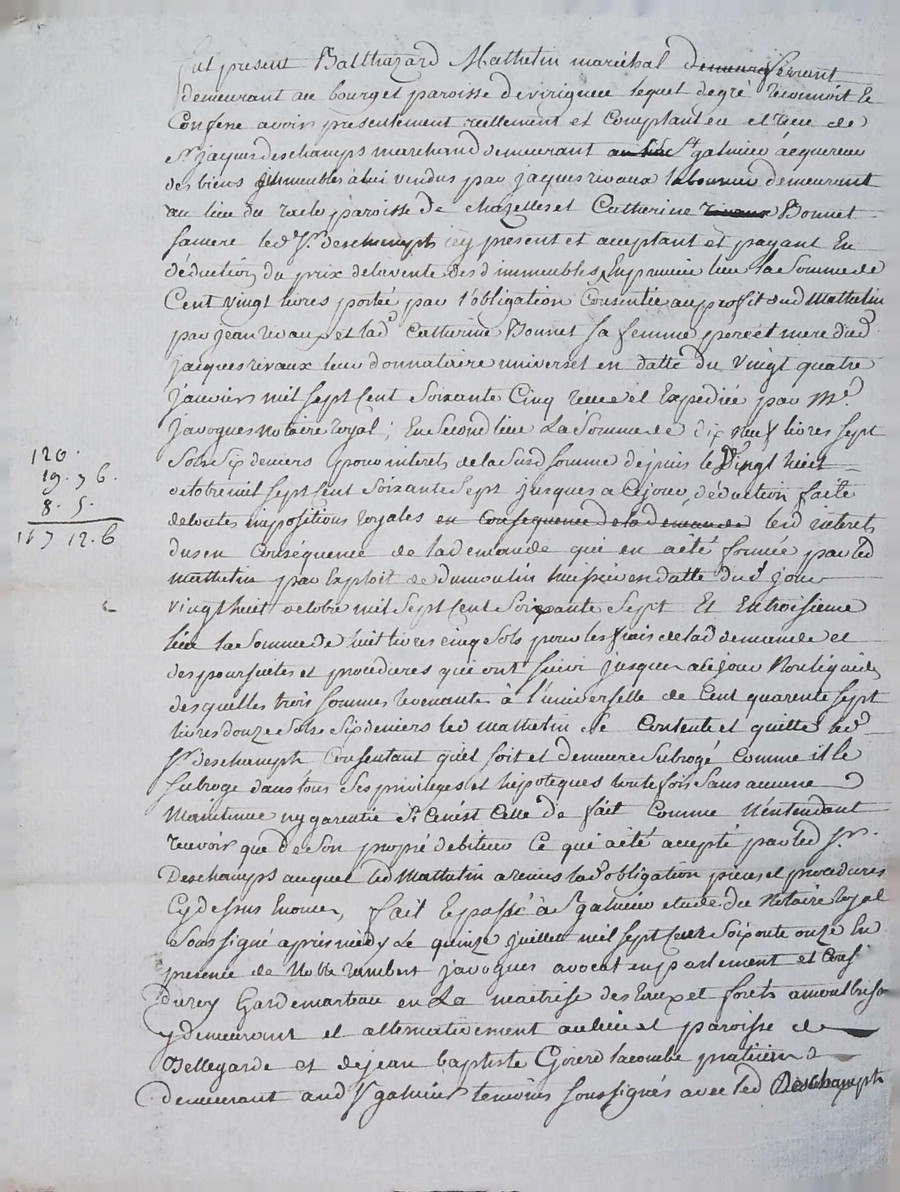 fut present Balthazard Mathelin maréchal demeura ferrant
demeurant au bourg et paroisse de virigneu lequel de gré reconnoit et
Confesse avoir presentement reellement et Comptant eu et receu de
Sr jaques deschamps marchand demeurant St galmier acquereur
des biens immeubles a lui vendus par jaques rivaux laboureur demeurant
au lieu du paroisse de chazelles et Catherine rivaux Bonnet
sa mere led Sr deschamps icy present et aceptant et payant En
déduction du prix de la vente desd immeubles En premier lieu la Somme de
Cent vingt livres portée par l'obligation Consentie au profit dud Mathelin
par jean rivaux et lad Catherine Bonnet sa femme pere et mere dud
jacques rivaux leur donnataire universel en datte du vingt quatre
janvier mil sept Cent soixante Cinq receue et Expediée par Me
javogues notaire royal; En Second lieu La Somme de dix neuf livres sept
Sols Six deniers pour interets de la susd somme depuis le vingt huit
octobre mil sept Cent soixante sept jusques a ce jour, déduction faite
de toutes impositions royales en Consequence de la demande lesd interets
dus en Conséquence de la demande qui en a été formée par led
mathelin par Exploit de dumoulin huissier en datte dud jour
vingt huit octobre mil sept Cent soixante sept Et En troisieme
lieu la Somme de huit livres cinq sols pour les frais de lad demande et
des poursuites et procedures qui ont suivi jusques a ce jour
desquelles trois sommes revenante à l'universelle de Cent quarente sept
livres douze Sols Six deniers led mathelin se Contente et quitte led
Sr deschamps Consentant qu'il soit et demeure Subrogé comme il le
Subroge dans tous ses privileges et hipoteques toute fois sans aucune
Maintenue ny garentie Si Ce n'est Celle de fait Comme N'entendant
recevoir que de Son propre debiteur Ce qui a été accepté par led Sr
Deschamps auquel led Mathelin a remis lad obligation pieces et procedures
Cy dessus fait et passé à St galmier etude du Notaire royal
Soussigné après midy Le quinze juillet mil sept Cent Soixante onze En
presence de Noble rambert javogues avocat en parlement et
du roy Garde marteau en La maitrise des Eaux et forets a montbrison
y demeurant et alternativement au lieu et paroisse de
Bellegarde et de jean baptiste lacombe praticien
demeurant aud St galmier temoins soussignés avec led Deschamps
120.
19. 7 6.
8. 5.
147 12. 6